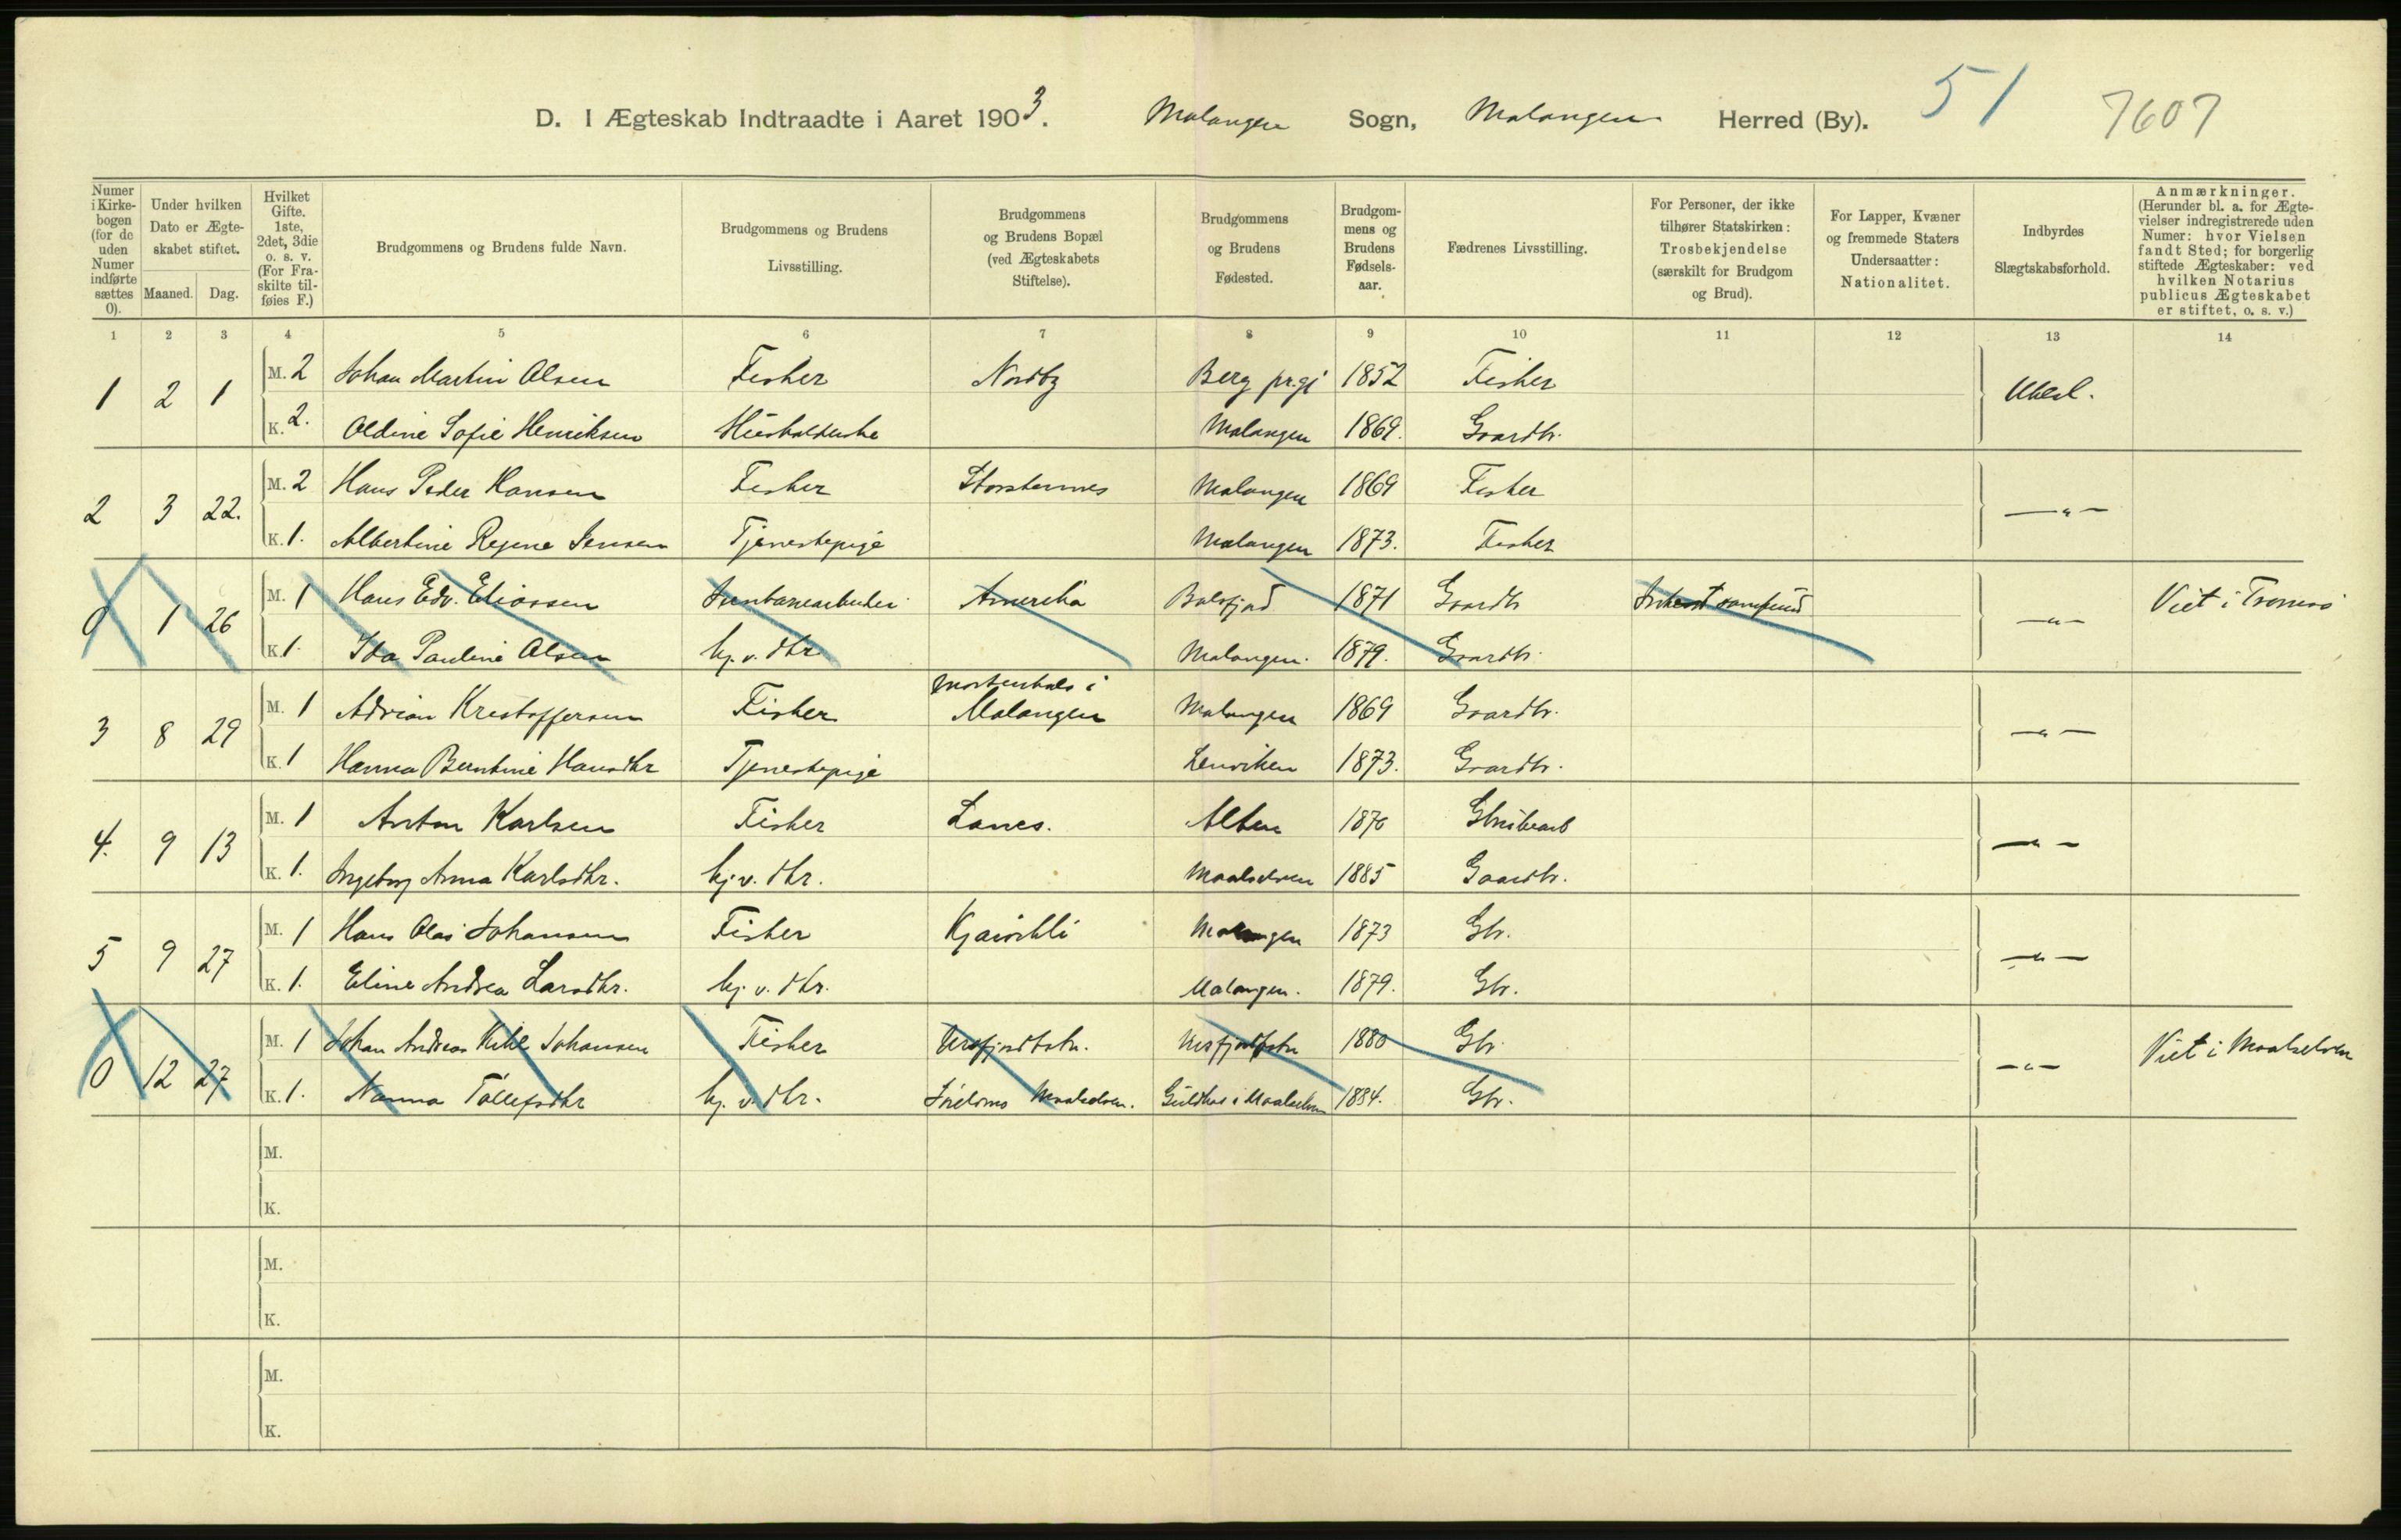 D. I Ægteskab Indtraadte i Aaret 1903. Malangen Sogn, Malangen Herred (By). 51 7607
Numer i Kirke-bogen (for de uden Numer indførte sættes 0).
Under hvilken Dato er Ægte-skabet stiftet.
Maaned. Dag.
Hvilket Gifte. 1ste, 2det, 3die o. s. v. (For Fra-skilte til-føies F.)
Brudgommens og Brudens fulde Navn.
Brudgommens og Brudens Livsstilling.
Brudgommens og Brudens Bopæl (ved Ægteskabets Stiftelse).
Brudgommens og Brudens Fødested.
Brudgom-mens og Brudens Fødsels-aar.
Fædrenes Livsstilling.
For Personer, der ikke tilhører Statskirken: Trosbekjendelse (særskilt for Brudgom og Brud).
For Lapper, Kvæner og fremmede Staters Undersaatter: Nationalitet.
Indbyrdes Slægtskabsforhold.
Anmærkninger. (Herunder bl. a. for Ægte-vielser indregistrerede uden Numer: hvor Vielsen fandt Sted; for borgerlig stiftede Ægteskaber: ved hvilken Notarius publicus Ægteskabet er stiftet, o. s. v.)
1 2 3 4 5 6 7 8 9 10 11 12 13 14
1 2 1 M. 2 Johan Martin Olsen Fisker Nordby Berg prgj 1852 Fisker Ubesl.
K. 2. Oldine Sofie Henriksen Husholderske Malangen 1869. Gaardbr.
2 3 22. M. 2 Hans Peder Hansen Fisker Storstennes Malangen 1869 Fisker — " —
K. 1. Albertine Regine Jensen Tjenestepige Malangen 1873. Fisker
0 1 26 M. 1 Hans Edv. Eliassen Jernbanearbeider Amerika Balsfjord 1871 Gaardbr — " — Viet i Tromsø
K. 1. Ida Pauline Olsen hj. v. dtr. Malangen. 1879. Gaardbr.
3 8 29 M. 1 Adrian Kristoffersen Fisker Mortenhals i Malangen Malangen 1869 Gaardbr. — " —
K. 1 Hanna Berntine Hansdtr Tjenestepige Lenviken 1873. Gaardbr.
4. 9 13 M. 1 Anton Karlsen Fisker Lanes. Alten 1876 — " —
K. 1. Ingeborg Anna Karlsdtr. hj. v. dtr. Maalselven 1885 Gaardbr.
5 9 27 M. 1 Hans Olai Johansen Fisker Malangen 1873 Gbr. — " —
K. 1. Eline Andrea Larsdtr. hj. v. dtr. Malangen. 1879. Gbr.
0 12 27 M. 1 Johan Andreas Kihl Johansen Fisker 1880 Gbr — " — Viet i Maalselven
K. 1. Nanna Tollefsdtr hj. v. dtr. Maalselven. i Maalselven 1884. Gbr.
M.
K.
M.
K.
M.
K.